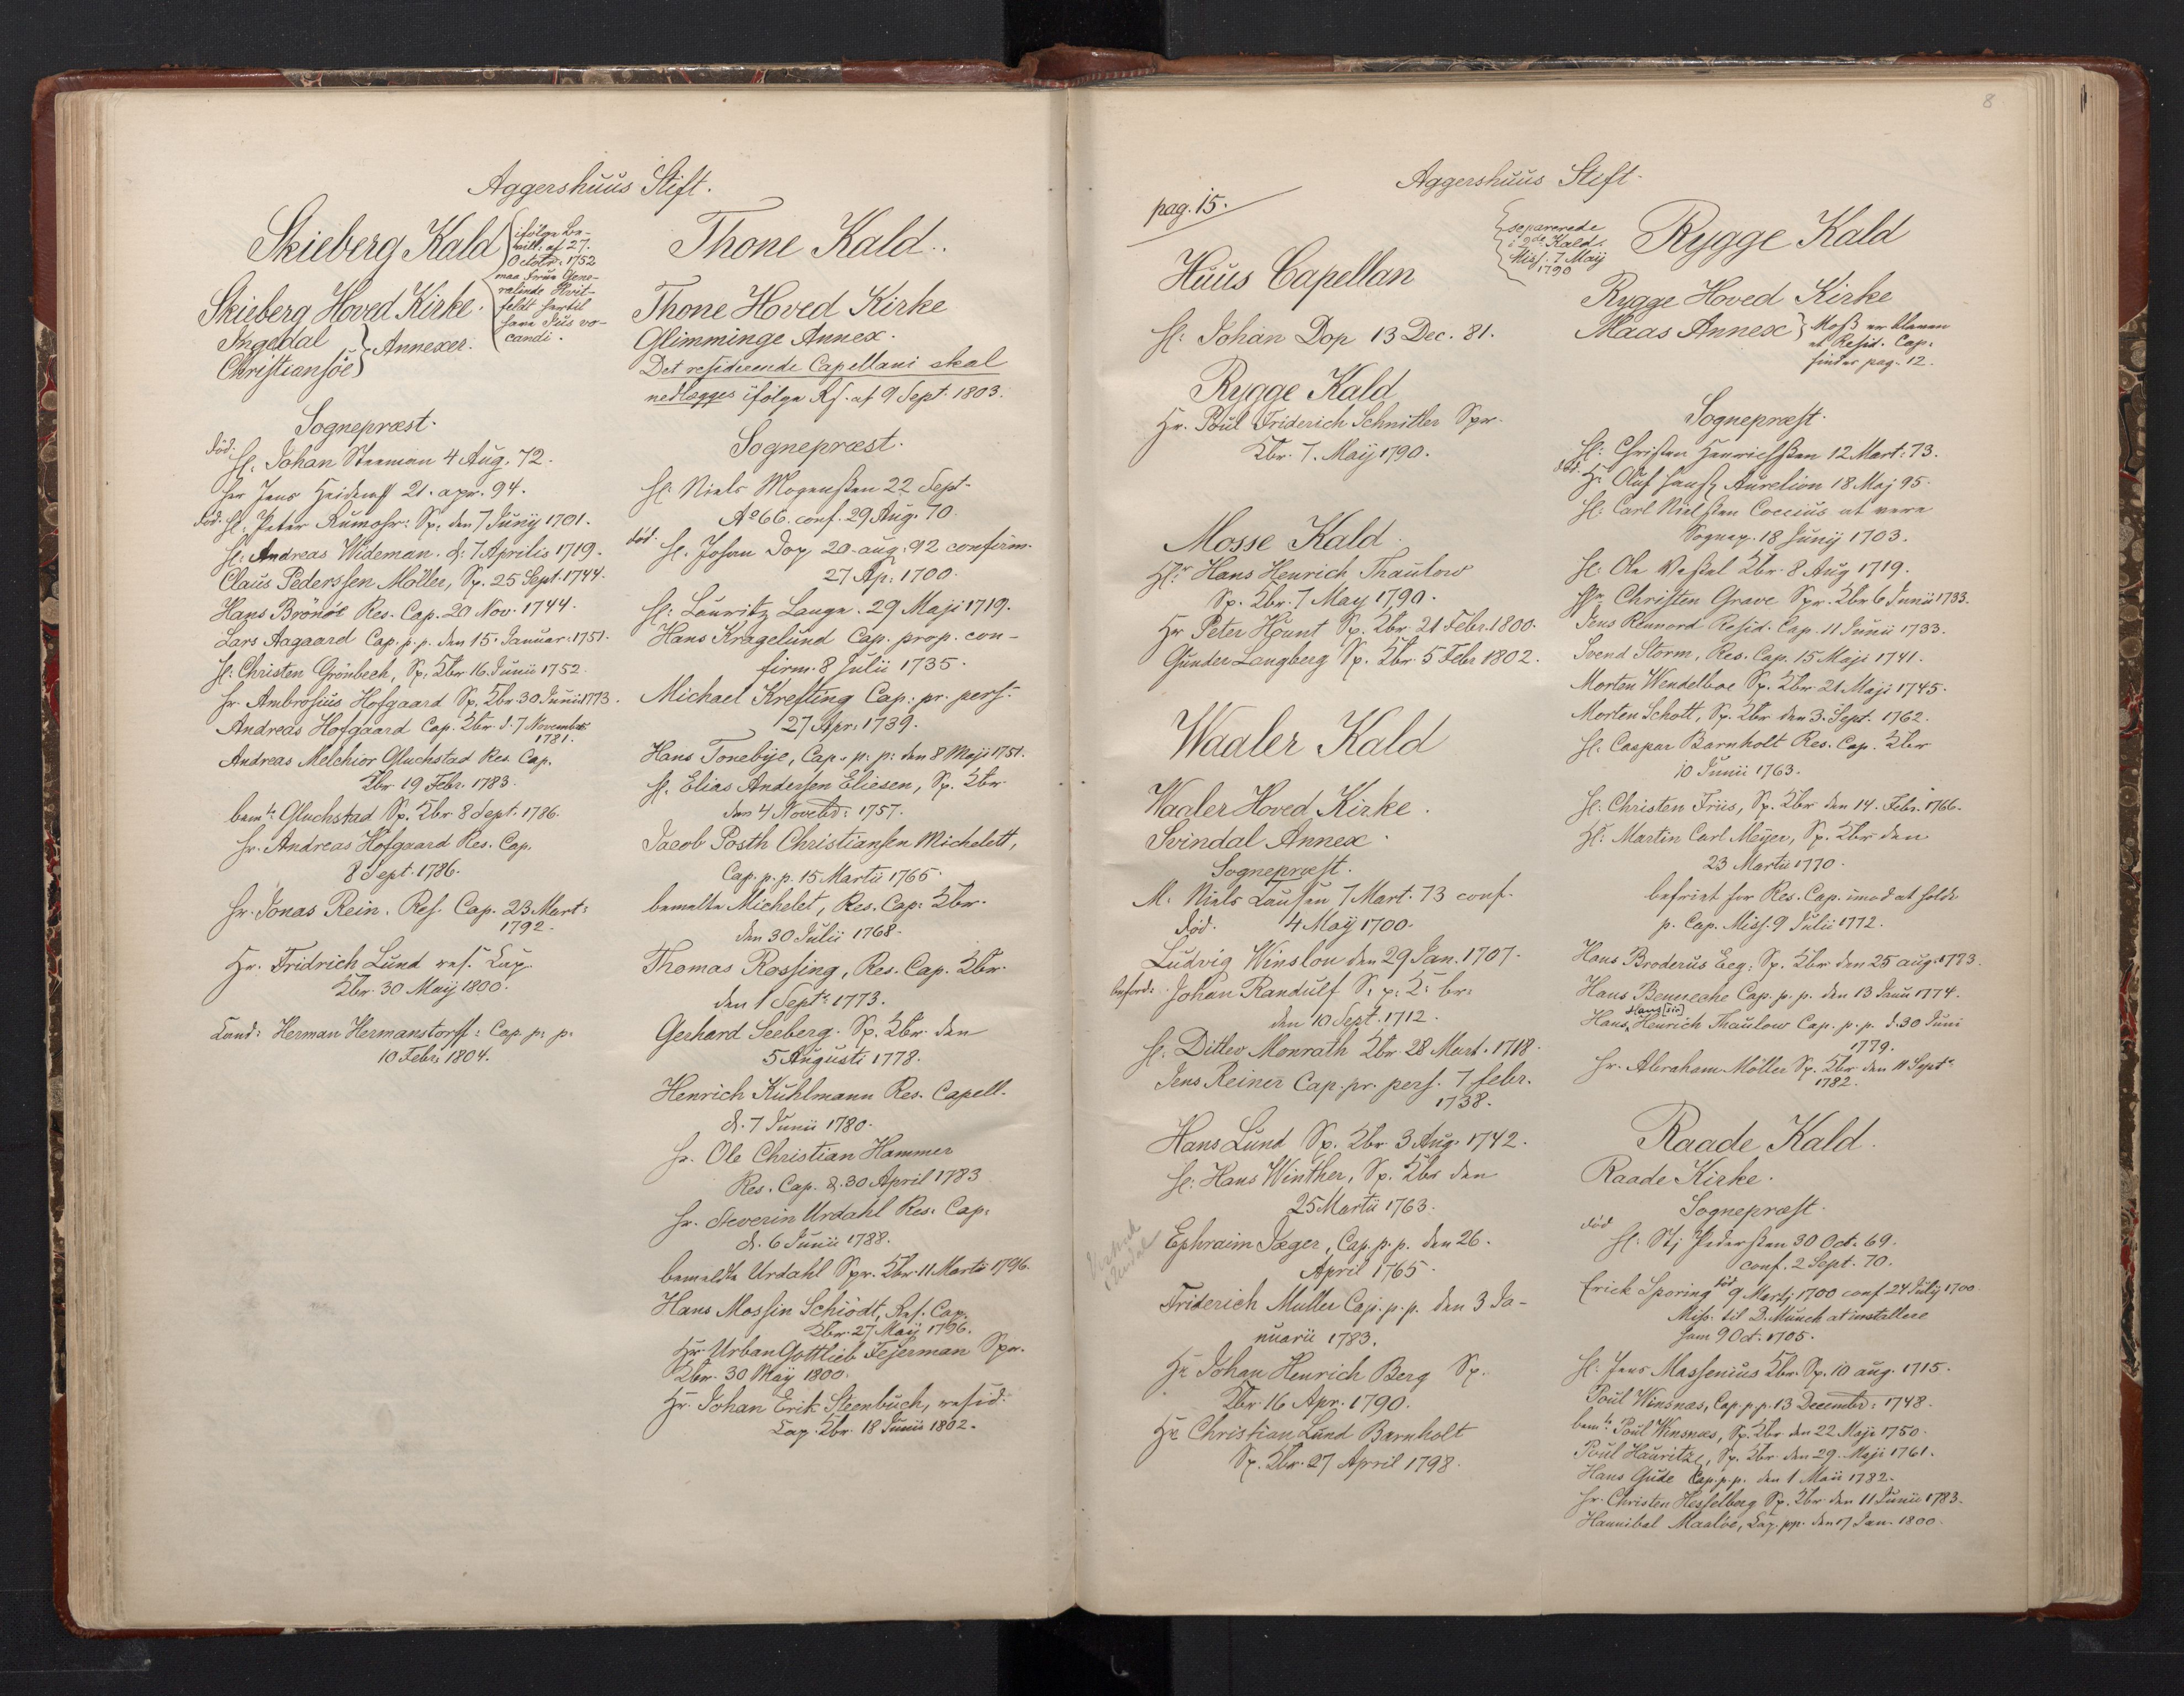 Aggershuus Stift.
Skieberg Kald
ifölge Be-
vill: af 27.
Octobr: 1752
maa Frue Gene-
ralinde Hvit-
feldt hertil
have Jus vo-
candi.
Skieberg Hoved Kirke.
Ingedal
Christiansöe
Annexer.
Sognepræst.
död. Hl. Johan 4 Aug. 72.
Her Jens 21. apr. 94.
död. Hl. Peter Rumohr: Sp. den 7 Junij 1701.
Hl: Andreas Wideman. d: 7 Aprilis 1719.
Claus Pederssen Möller, Sp. 25 Sept. 1744.
Hans Brönöe Res. Cap. 20 Nov. 1744.
Lars Aagaard Cap. p. p. den 15. Januar: 1751.
Hl: Christen Grönbech, Sp. Kbr 16. Junii 1752.
Hr. Ambrosius Hofgaard Sp. Kbr 30 Junii 1773.
Andreas Hofgaard Cap. Kbr. d. 7 November
1781.
Andreas Melchior Gluchstad Res. Cap.
Kbr 19 Febr. 1783.
bemte Gluchstad Sp. Kbr. 8 Sept. 1786.
Hr. Andreas Hofgaard Res. Cap.
8 Sept. 1786.
Hr. Jonas Rein. Res. Cap. 23. Mart:
1792.
Hr. Fridrich Lund res. Cap.
Kbr. 30 Maij 1800.
Cand: Herman Hermanstorff: Cap. p. p.
10 Febr. 1804.
Thone Kald.
Thone Hoved Kirke
Glimminge Annex.
Det residerende Capellani skal
nedlægges ifölge Rs. af 9 Sept. 1803.
Sognepræst.
Hl. Niels Mogenssen 22 Sept.
Ao 66. conf. 29 Aug. 70.
död. Hl. Johan Dop 20 aug. 92 confirm.
27 Ap: 1700.
Hl: Lauritz Lange. 29 Maji 1719.
Hans Kragelund Cap. prop. con-
firm. 8 Julii 1735.
Michael Krefting Cap: pr. pers.
27 Apr. 1739.
Hans Tonebye, Cap. p. p: den 8 Maji 1751.
Hl. Elias Andersen Eliesen, Sp. Kbr.
den 4 Novebr: 1757.
Jacob Posth Christiansen Michelett,
Cap. p. p. 15 Martii 1765.
bemelte Michelet, Res. Cap: Kbr.
den 30 Julii 1768.
Thomas Rossing, Res. Cap. Kbr.
den 1 Septr 1773.
Gerhard Seeberg. Sp. Kbr. den
5 Augusti 1778.
Henrich Kuhlmann Res. Capell.
d. 7 Junii 1780.
Hr. Ole Christian Hammer
Res. Cap. d. 30 April 1783
Hr. Severin Urdahl Res. Cap.
d. 6 Junii 1788.
bemeldte Urdahl Spr. Kbr. 11 Martii 1796.
Hans Mossin Schiödt, Res. Cap.
Kbr. 27 Maij 1796.
Hr. Urban Gottlieb Fejerman Spr.
Kbr. 30 Maij 1800.
Hr. Johan Erik Steenbuch, resid:
Cap. Kbr. 18 Junii 1802.
8
Aggershuus Stift.
pag. 15.
Huus Capellan
Hl: Johan Dop 13 Dec. 81.
Rygge Kald
Hr. Poul Friderich Schnitler Spr.
Kbr. 7. Maij 1790.
Mosse Kald.
Hr. Hans Henrich Thaulow
Sp. Kbr. 7 May 1790.
Hr Peter Hount Sp. Kbr. 21 Febr. 1800.
Gunder Langberg Sp. Kbr. 5 Febr 1802.
Waaler Kald
Waaler Hoved Kirke.
Svindal Annex.
Sognepræst.
M. Niels Lausen 7 Mart. 73 conf.
död. 4 Maij 1700.
Ludvig Winslou den 29 Jan. 1707.
beford: Johan Randulf S. p. K: br:
den 10 Sept. 1712.
Hl. Ditlev Monrath Kbr 28 Mart. 1718.
Jens Reiner Cap. pr. pers. 7 febr.
1738.
Hans Lund Sp. Kbr 3 Aug. 1742.
Hl: Hans Winther, Sp. Kbr den
25 Martii 1763.
Ephraim Jæger, Cap. p. p. den 26.
April 1765.
Friderich Muller Cap. p. p. den 3 Ja-
nuarii 1783.
Hr Johan Henrich Berg Sp.
Kbr 16 Apr. 1790.
Hr Christian Lund Barnholt
Sp. Kbr. 27 April 1798.
separerede
i 2de Kald.
Miss. 7 Maij
1790
Rygge Kald
Rygge Hoved Kirke
Maas Annex
Moss er bleven
et Resid. Cap:
findes pag. 12.
Sognepræst.
Hl: Christen Henrichssen 12 Mart: 73.
död. Hr Oluf Hans: Aurelion 18 Maj 95.
Hl: Carl Nielssen Coccius at være
Sognep. 18 Junij 1703.
Hl: Ole Wessel Kbr. 8 Aug 1719.
Hr Christen Grave Spr. Kbr 6 Junii 1733.
Jens Rennord Resid. Cap. 11 Junii 1733.
Svend Storm, Res. Cap. 15 Maji 1741.
Morten Wendelboe Sp. Kbr. 21 Maji 1745.
Morten Schott, Sp. Kbr den 3. Sept. 1762.
Hl: Caspar Barnholt Res. Cap. Kbr
10 Junii 1763.
Hl: Christen Friis, Sp. Kbr den 14. Febr. 1766.
Hl: Martin Carl Meyer, Sp. Kbr den
23 Martii 1770.
befriet for Res. Cap. imod at holde
p. Cap. Miss. 9 Julii 1772.
Hans Broderus Eeg: Sp. Kbr den 25 aug. 1773.
Hans Benneche Cap. p. p. den 13 Janu 1774.
Hans (sic)
Hans Henrich Thaulow Cap. p. p. d. 30 Juni
1779.
Hr. Abraham Möller Sp. Kbr den 11 Septr
1782.
Raade Kald.
Raade Kirke.
Sognepræst.
död
Hl: Pederssen 30 Oct. 69.
conf. 2 Sept. 70.
död
Erick Sporing 9 Martj 1700 conf. 24 Julij 1700.
Miss. til D. Munch at installere
ham 9 Oct. 1705.
Hl: Jens Massenius Kbr. Sp. 10 aug. 1715.
Poul Winsnæs, Cap. p. p. 13 Decembr: 1748.
bemte Poul Winsnæs, Sp. Kbr den 22 Maji 1750.
Poul Hauritz, Sp. Kbr den 29. Maji 1761.
Hans Gude Cap. p. p. den 1 Maii 1782.
Hr. Christen Hesselberg Sp. Kbr den 11 Junii 1783.
Hannibal Maaløe, Cap. pp. den 17 Jan. 1800.